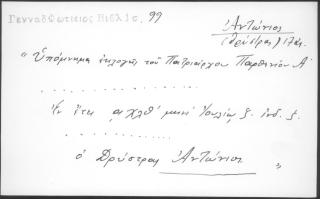 Γενναδ Φωτίειος Βιβλιο. 99
Ἀντώνιος
(Δρύστρας) 17αι.
“ Ὑπόμνημα ἐκλογῆς τοῦ Πατριάρχου Παρθενίου Α΄
. . . . . . . . . . . .
Ἐν ἔτει αχλθ΄ μηνὶ Ἰουλίῳ ζ. ἰνδ. ζ.
. . . . . . . . . . . .
ὁ Δρύστρας Ἀντώνιος ”